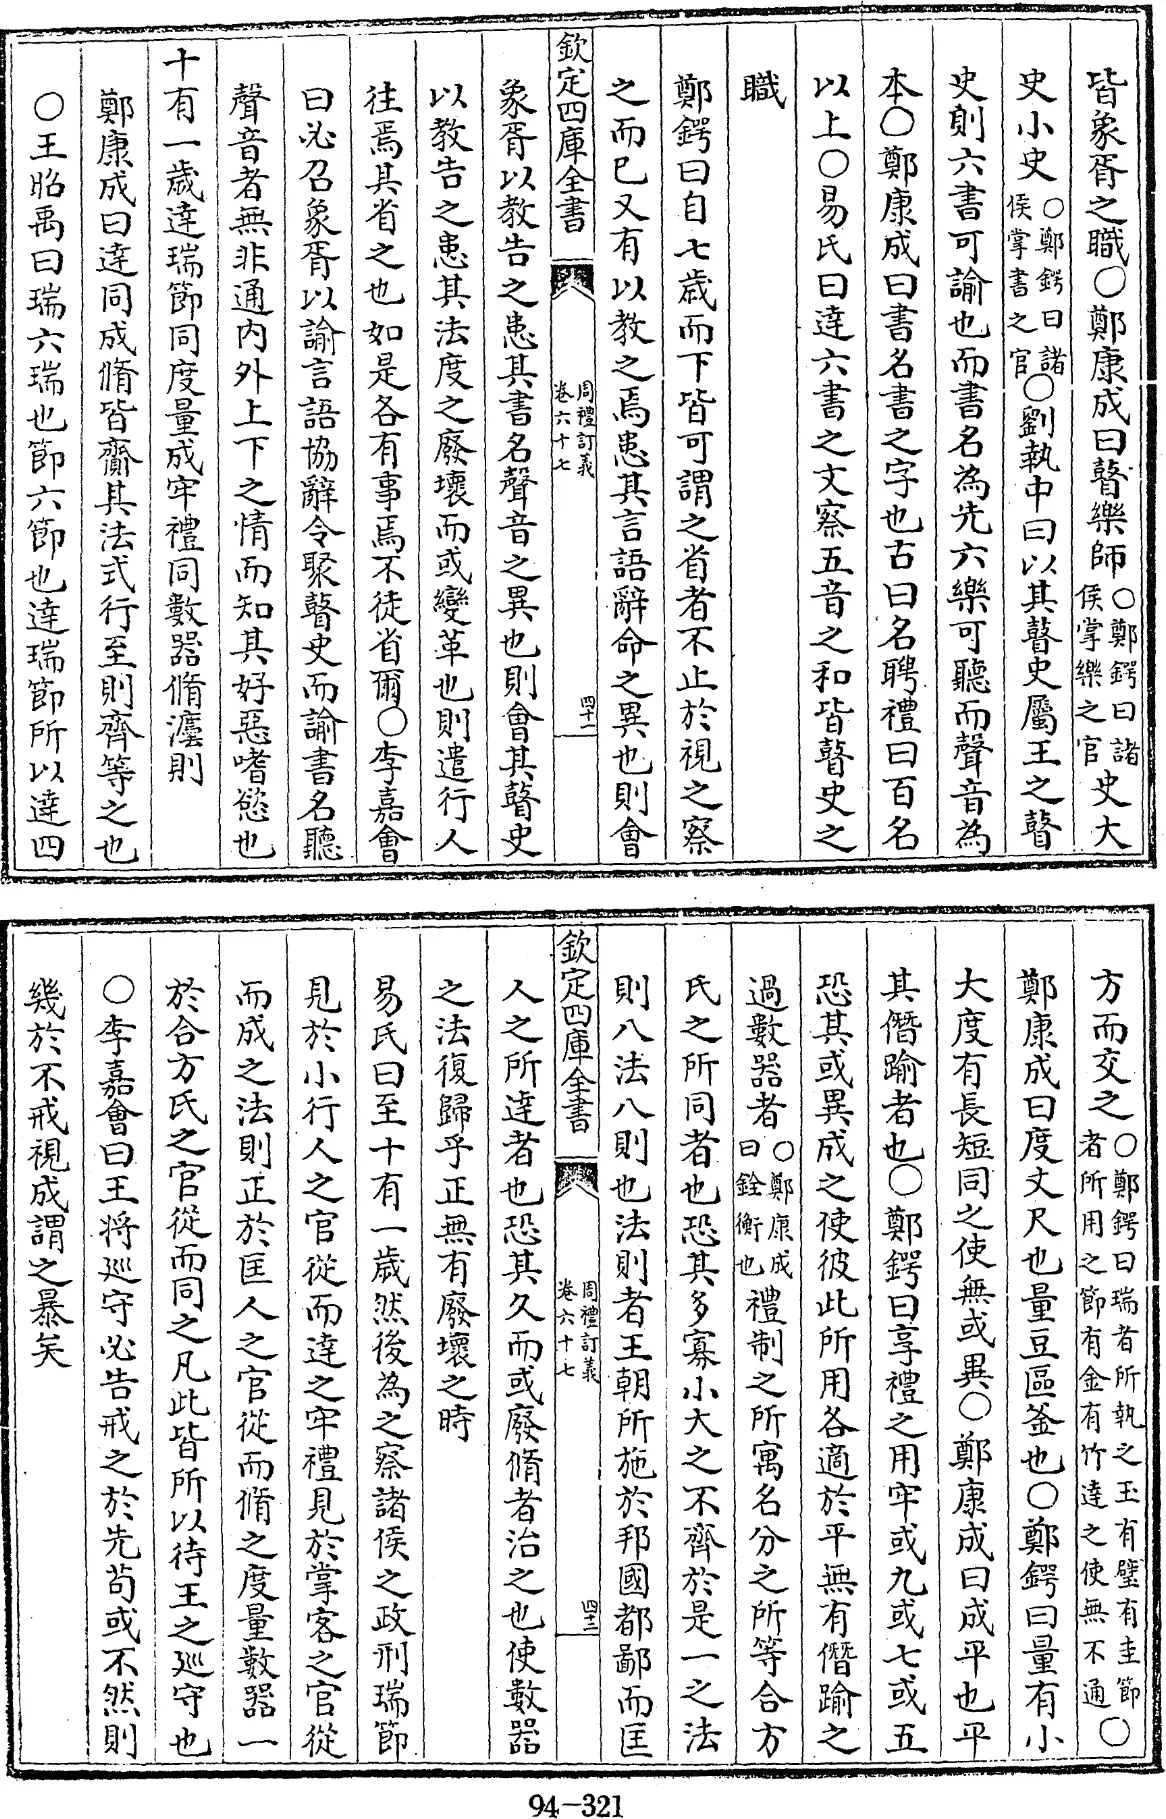 皆象胥之職○鄭康成曰瞽樂師○鄭鍔曰諸侯掌樂之官史大
史小史○鄭鍔曰諸侯掌書之官○劉執中曰以其瞽史屬王之瞽
史則六書可諭也而書名為先六樂可聽而聲音為
本○鄭康成曰書名書之字也古曰名聘禮曰百名
以上○易氏曰達六書之文察五音之和皆瞽史之
職
鄭鍔曰自七歲而下皆可謂之省者不止於視之察
之而已又有以教之焉患其言語辭命之異也則會
欽定四庫全書
周禮訂義
卷六十七
四十二
象胥以教告之患其書名聲音之異也則會其瞽史
以教告之患其法度之廢壞而或變革也則遣行人
往焉其省之也如是各有事焉不徒省爾○李嘉會
曰必召象胥以諭言語協辭令聚瞽史而諭書名聽
聲音者無非通內外上下之情而知其好惡嗜慾也
十有一歲達瑞節同度量成牢禮同數器脩灋則
鄭康成曰達同成脩皆齎其法式行至則齊等之也
○王昭禹曰瑞六瑞也節六節也達瑞節所以達四
方而交之○鄭鍔曰瑞者所執之玉有璧有圭節者所用之節有金有竹達之使無不通○
鄭康成曰度丈尺也量豆區釜也○鄭鍔曰量有小
大度有長短同之使無或異○鄭康成曰成平也平
其僭踰者也○鄭鍔曰享禮之用牢或九或七或五
恐其或異成之使彼此所用各適於平無有僭踰之
過數器者○鄭康成曰銓衡也禮制之所寓名分之所等合方
氏之所同者也恐其多寡小大之不齊於是一之法
則八法八則也法則者王朝所施於邦國都鄙而匡
欽定四庫全書
周禮訂義
卷六十七
四十三
人之所達者也恐其久而或廢脩者治之也使數器
之法復歸乎正無有廢壞之時
易氏曰至十有一歲然後為之察諸侯之政刑瑞節
見於小行人之官從而達之牢禮見於掌客之官從
而成之法則正於匡人之官從而脩之度量數器一
於合方氏之官從而同之凡此皆所以待王之廵守也
○李嘉會曰王將廵守必告戒之於先苟或不然則
幾於不戒視成謂之暴矣
94-321